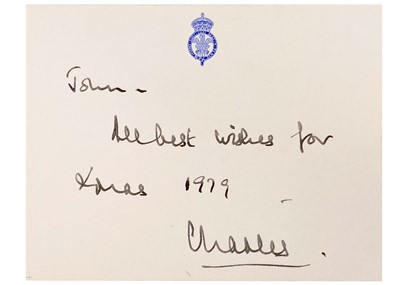 John -
All best wishes for
Xmas 1979
Charles.